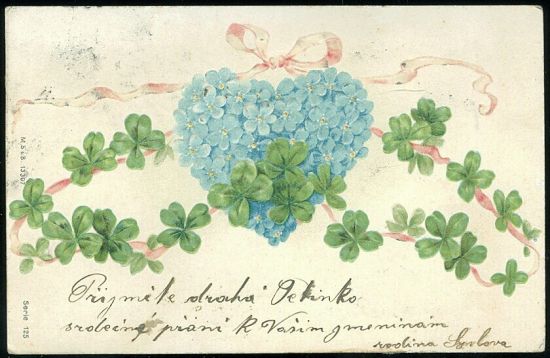 M.S.i.B. 13301
Serie 125
Přijměte drahá Petinko
srdečné přání k Vašim jmeninám
rodina